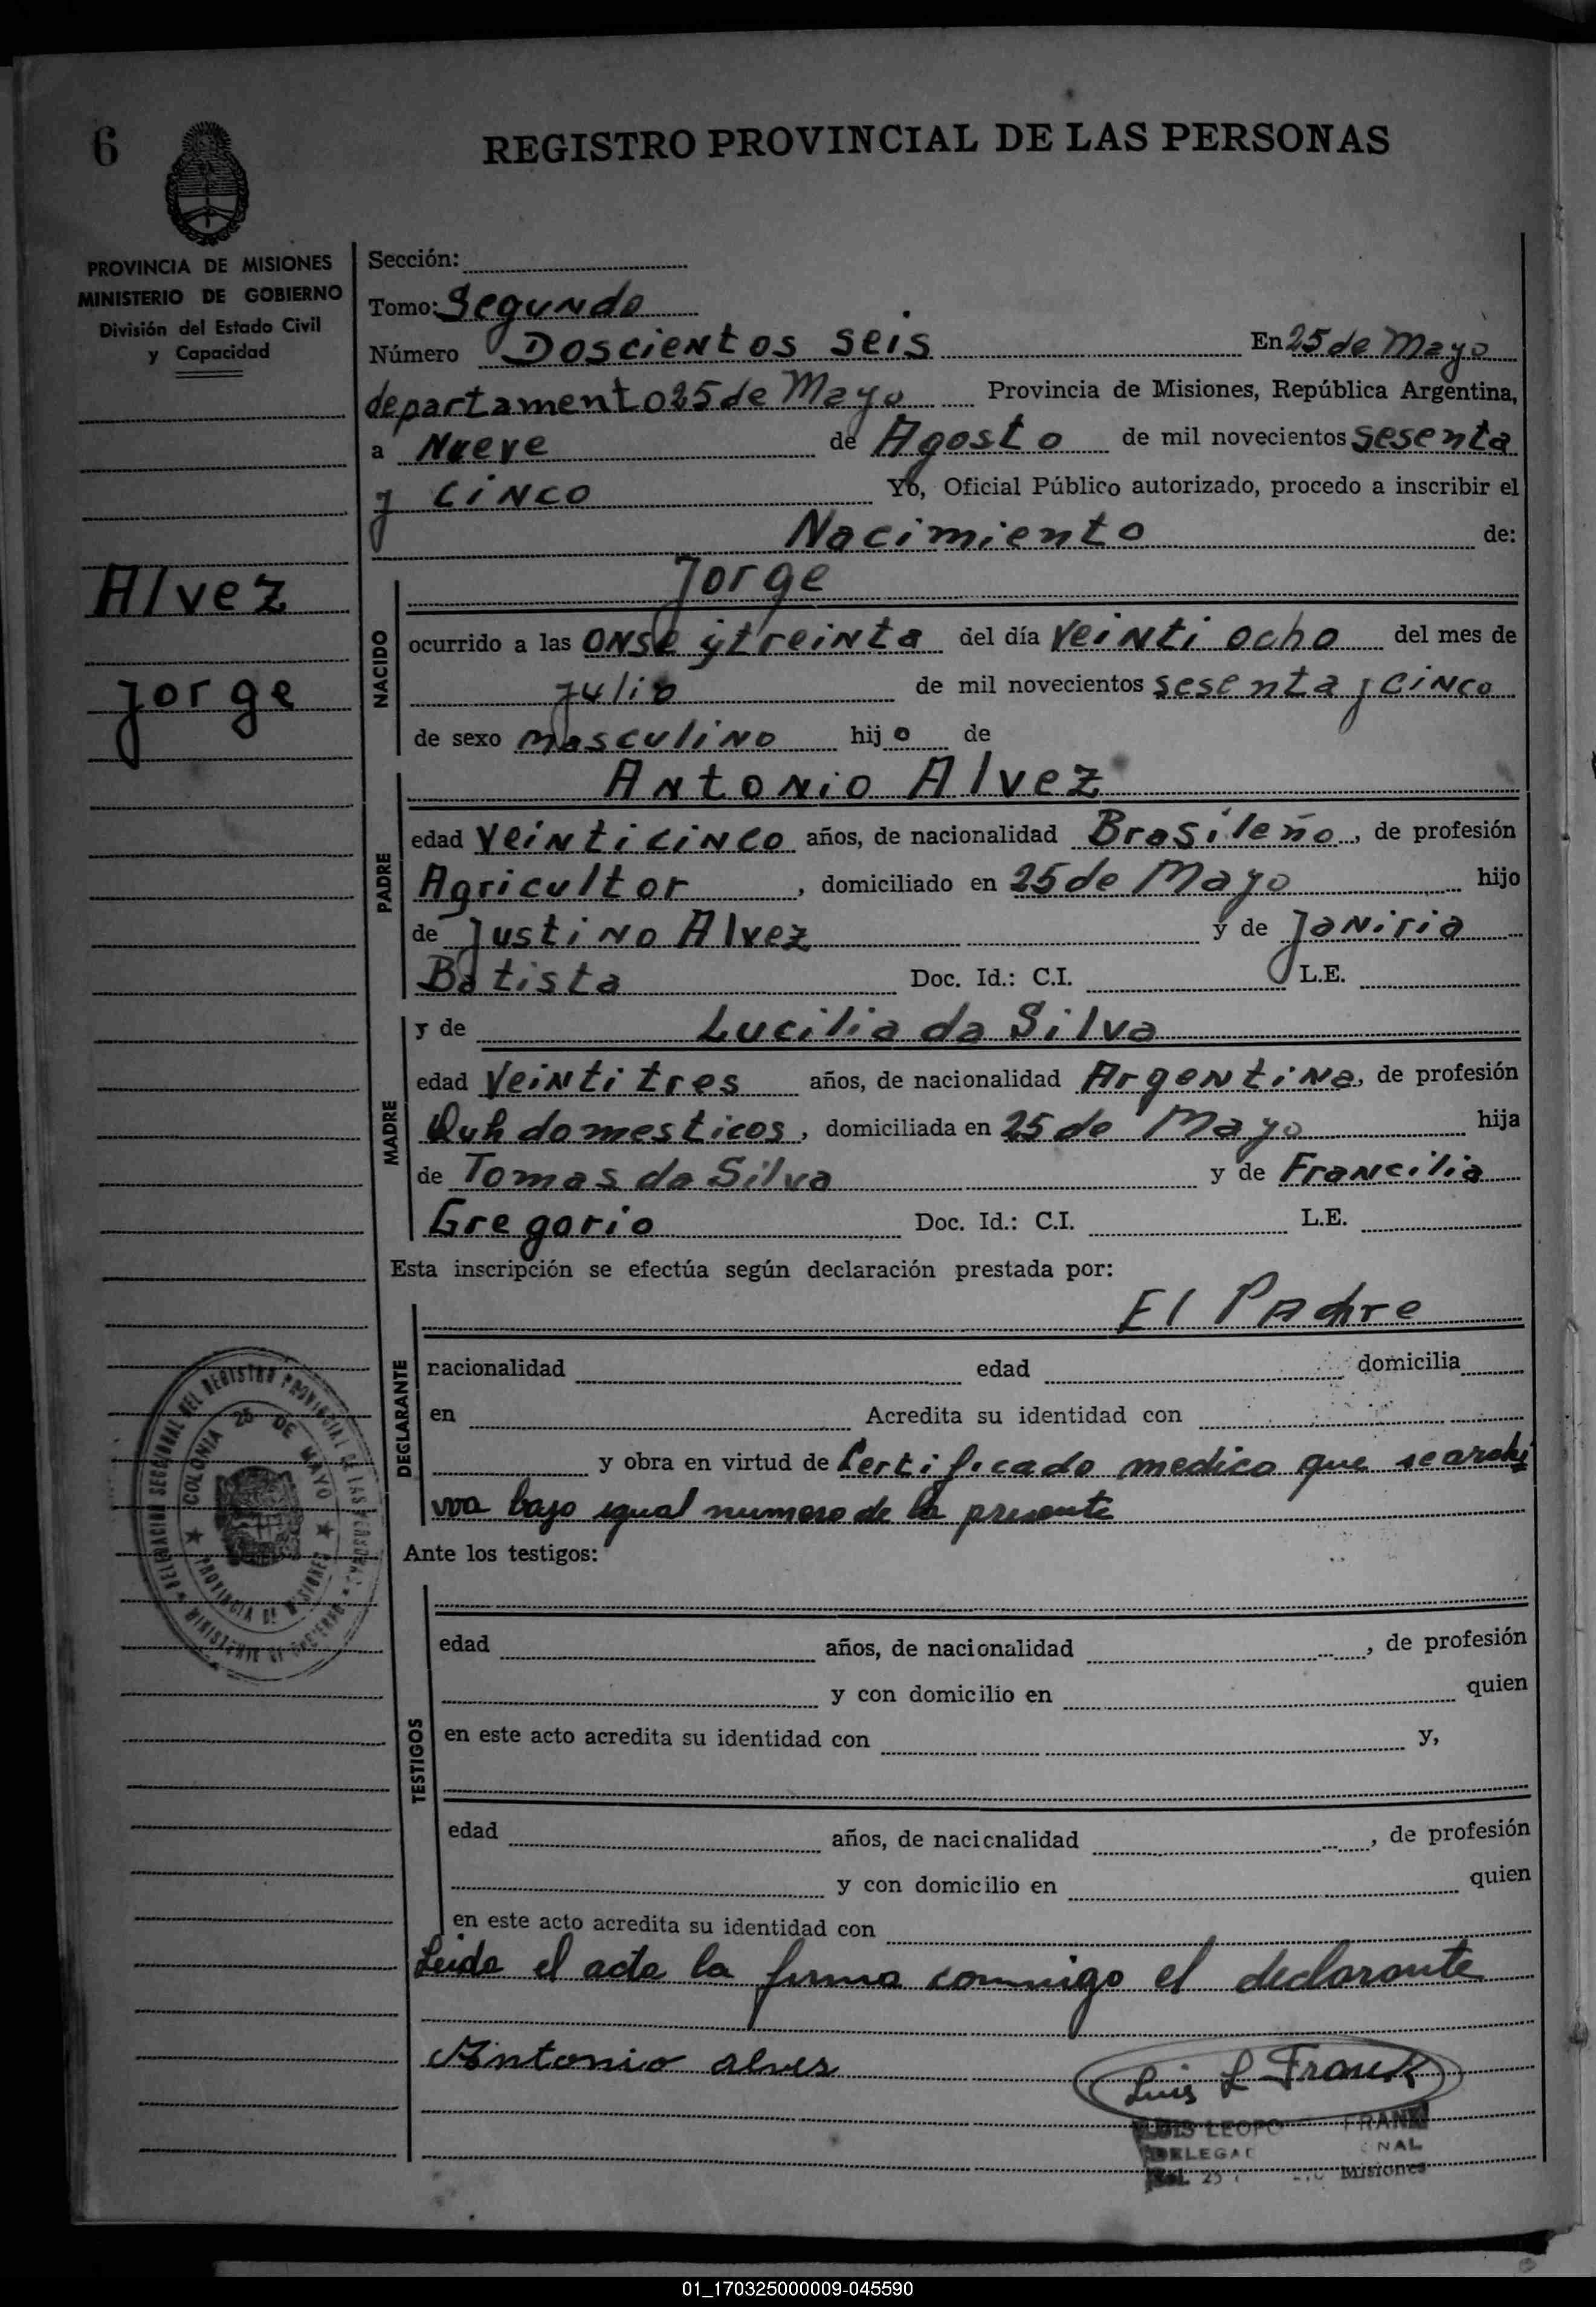 6
REGISTRO PROVINCIAL DE LAS PERSONAS
PROVINCIA DE MISIONES
MINISTERIO DE GOBIERNO
División del Estado Civil
y Capacidad
Alvez
Jorge
Sección:
Tomo: Segundo
Número Doscientos seis En 25 de Mayo
departamento 25 de Mayo Provincia de Misiones, República Argentina,
a Nueve de Agosto de mil novecientos sesenta
y cinco Yo, Oficial Público autorizado, procedo a inscribir el
Nacimiento de:
NACIDO
Jorge
ocurrido a las onse y treinta del día veinti ocho del mes de
julio de mil novecientos sesenta y cinco
de sexo masculino hijo de
PADRE
Antonio Alvez
edad veinticinco años, de nacionalidad Brasileño, de profesión
Agricultor, domiciliado en 25 de Mayo hijo
de Justino Alvez y de Janiria
Batista Doc. Id.: C.I. L.E.
MADRE
y de Lucilia da Silva
edad veintitres años, de nacionalidad Argentina, de profesión
domesticos, domiciliada en 25 de Mayo hija
de Tomas da Silva y de Francilia
Gregorio Doc. Id.: C.I. L.E.
Esta inscripción se efectúa según declaración prestada por:
DECLARANTE
El Padre
nacionalidad edad domicilia
en Acredita su identidad con
y obra en virtud de Certificado medico que se archi
vva bajo igual numero de la presente
Ante los testigos:
TESTIGOS
edad años, de nacionalidad , de profesión
y con domicilio en quien
en este acto acredita su identidad con y,
edad años, de nacicnalidad , de profesión
y con domicilio en quien
en este acto acredita su identidad con
Leida el acta la firma conmigo el declarante
Antonio alves
Luis L Frank
LUIS LEOPO FRANK
DELEGAD NAL
Col. 25 Misiones
DELEGACION SECCIONAL DEL REGISTRO PROVINCIAL DE LAS PERSONAS
MINISTERIO DE GOBIERNO
COLONIA 25 DE MAYO
PROVINCIA DE MISIONES
01_170325000009-045590